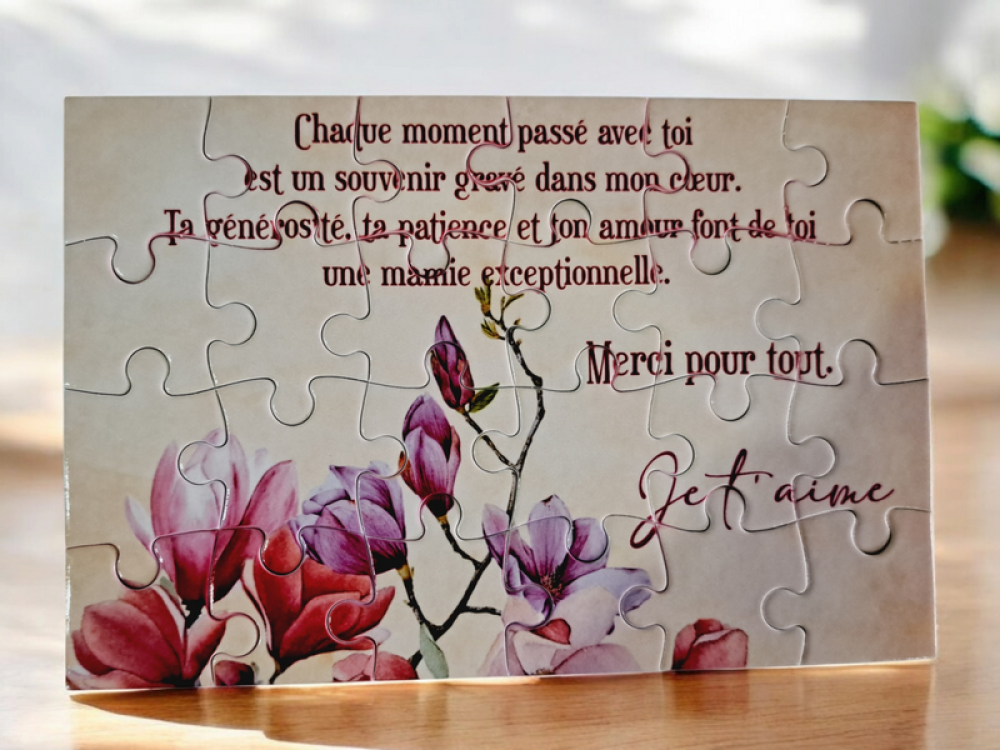 Chaque moment passé avec toi
est un souvenir gravé dans mon cœur.
Ta générosité, ta patience et ton amour font de toi
une mamie exceptionnelle.
Merci pour tout.
Je t'aime